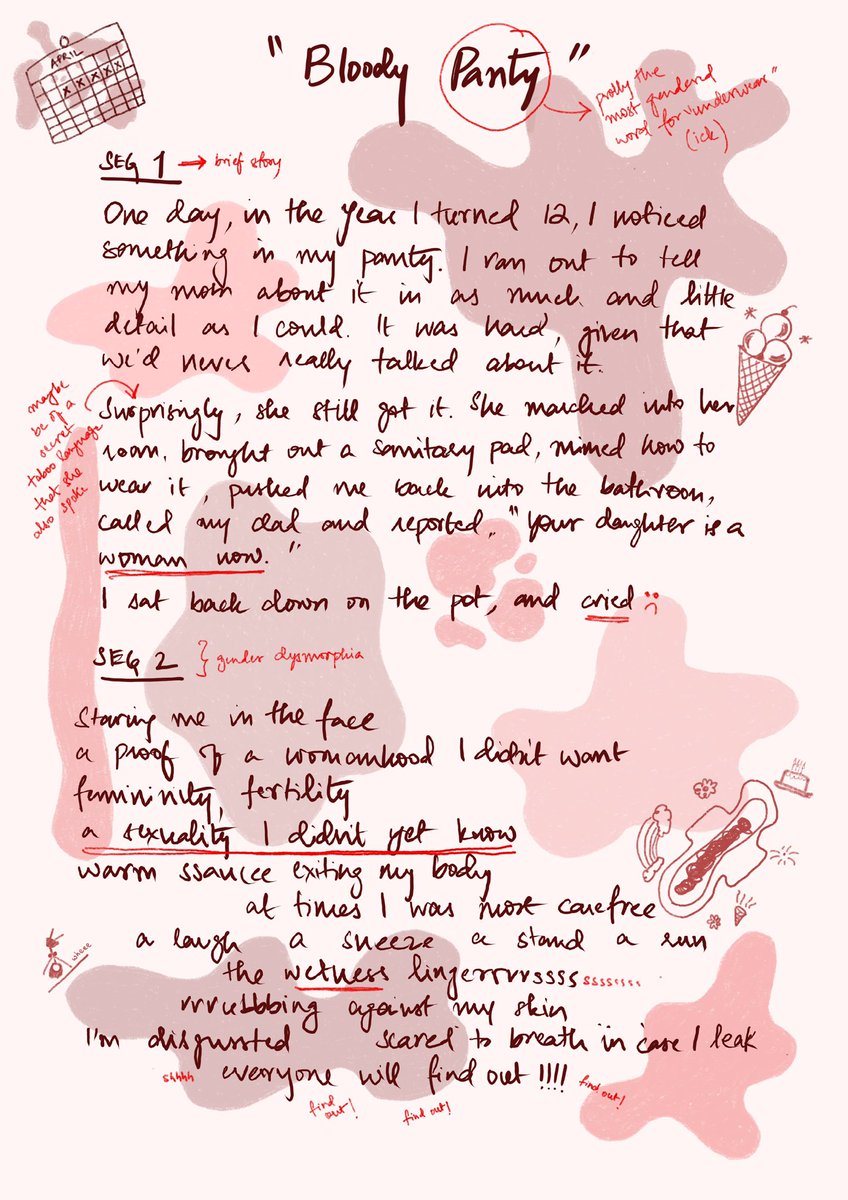 APRIL
X X X X X
"Bloody Panty"
prolly the
most gendered
word for "underwear"
(ick)
SEG 1 → brief story
One day, in the year I turned 12, I noticed
something in my panty. I ran out to tell
my mom about it in as much and little
detail as I could. It was hard, given that
we'd never really talked about it.
maybe
be of a
secret
taboo language
that she
also spoke
Surprisingly, she still got it. She marched into her
room, brought out a sanitary pad, mimed how to
wear it, pushed me back into the bathroom,
called my dad and reported, "Your daughter is a
woman now."
I sat back down on the pot, and cried
SEG 2 } gender dysmorphia
Staring me in the face
a proof of a womanhood I didn't want
femininity, fertility
a sexuality I didn't yet know
warm ssaucee exiting my body
at times I was most carefree
a laugh a sneeze a stand a run
wheee
the wetness lingerrrrssss ssssssss
rrrubbbing against my skin
I'm disgusted scared to breath in case I leak
shhhh everyone will find out !!!!
find out!
find out!
find out!